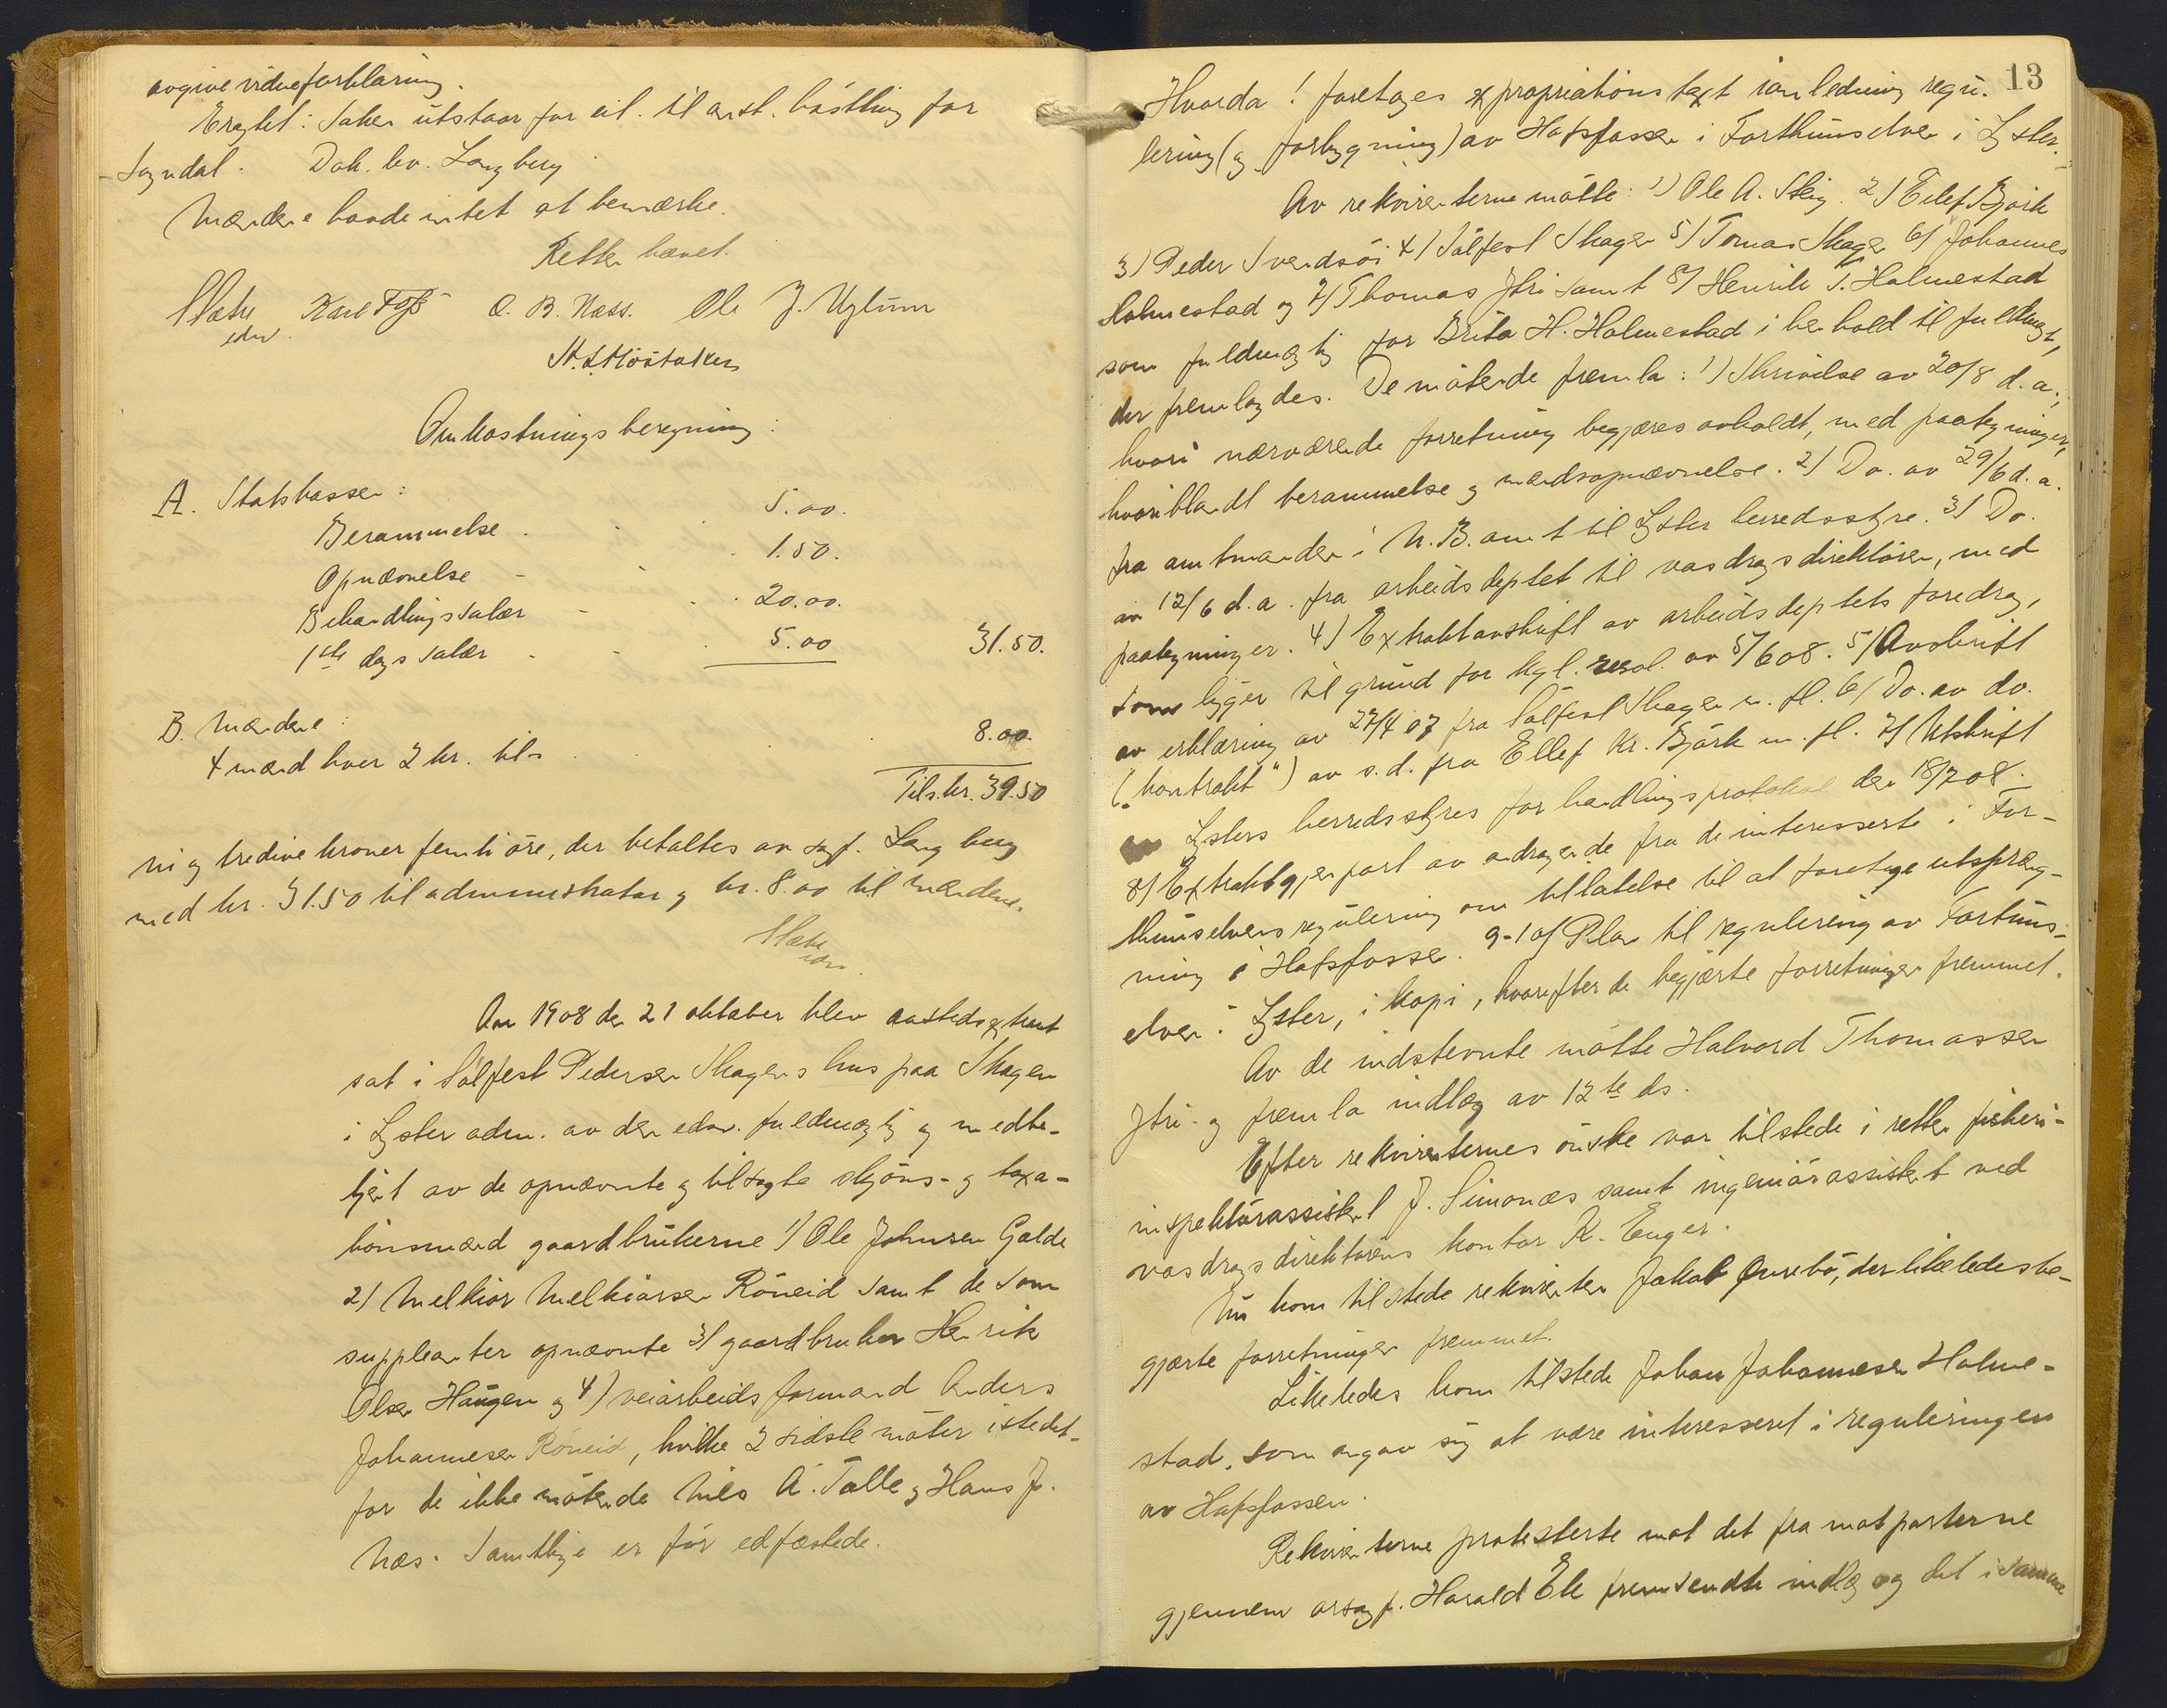 avgive vidneforklaring.
Eragtet: Saken utstaar for eit. til extr. basthing for
Sogndal. Dok. lev. Langberg
Mændene havde intet at bemærke.
Retten hævet.
Karl Foss O. B. Næss. Ole J. Uglum
edsv.
Omkostningsberegning:
A. Statskassen:
Berammelse . . . 5.00.
Opnævnelse - . . 1.50.
Behandlingssalær - . . 20.00.
1ste dags salær - - . 5.00 31.50.
B. Mændene:
4 mænd hver 2 kr. tils. . . . 8.00.
Tils. kr. 39.50
Ni og tredive kroner femti øre, der betaltes av sagf. Langberg
med kr. 31.50 til administrator og kr. 8.00 til mændene.
Aar 1908 den 21 oktober blev aastedsextraret
sat i Sølfest Pedersen Skagens hus paa Skagen
i Lyster adm. av den edsv. fuldmægtig og medbe-
tjent av de opnævnte og tilsagte skjøns- og taxa-
tionsmænd gaardbrukerne 1) Ole Johnsen Galde
2) Melkior Melkiorsen Røneid samt de som
suppleanter opnævnte 3) gaardbruker Henrik
Olsen Haugen og 4) veiarbeidsformand Anders
Johannesen Røneid, hvilke 2 sidste møter istedet-
for de ikke møtende Nils A. Talle og Hans J.
Næs. Samtlige er før edfæstede.
13
Hvorda! foretages expropriationstaxt i anledning regu-
lering (og forbygning) av Hafsfossen i Forthunselven i Lyster.
Av rekvirenterne møtte: 1) Ole A. Steig. 2) Eilef Bjørk
3) Peder Svendsøi 4) Sølfest Skagen 5) Tomas Skagen 6) Johannes
Holmestad og 7) Thomas Ytri samt 8) Henrik T. Holmestad
som fuldmægtig for Brita H. Holmestad i henhold til fuldmagt,
der fremlagdes. De møtende fremla: 1) Skrivelse av 20/8 d.a.,
hvori nærværende forretning begjæres avholdt, med paategninger,
hvoriblandt berammelse og mændsopnævnelse. 2) Do. av 29/6 d.a.
fra amtmanden i N.B. amt til Lyster herredsstyre. 3) Do.
av 12/6 d.a. fra arbeidsdeptet til vasdragsdirektøren, med
paategninger. 4) Extraktavskrift av arbeidsdeptets foredrag,
som ligger til grund for kgl. resol. av 5/6 08. 5) Avskrift
av erklæring av 27/4 07 fra Sølfest Skagen m. fl. 6) Do. av do.
("kontrakt") av s.d. fra Ellef Kr. Bjørk m. fl. 7) Utskrift
Lysters herredsstyres forhandlingsprotokol den 18/7 08.
8) Extraktgjenpart av andragende fra de interesserte i For-
thunselvens regulering om tillatelse til at foretage utspræng-
ning i Hafsfossen. 9-10) Plan til regulering av Fortuns-
elven i Lyster, i kopi, hvorefter de begjærte forretningen fremmet.
Av de indstevnte møtte Halvord Thomassen
Ytri og fremla indlæg av 12te ds.
Efter rekvirenternes ønske var tilstede i retten fiskeri-
inspektørassistent J. Simonæs samt ingeniørassistent ved
vasdragsdirektørens kontor R. Enger.
Nu kom tilstede rekvirenten Jakob Øvrebø, der likeledes be-
gjærte forretningen fremmet.
Likeledes kom tilstede Johan Johannesen Holme-
stad, som angav sig at være interesseret i reguleringen
av Hafsfossen.
Rekvirenterne protesterte mot det fra motparterne
gjennem orsagf. Harald Ek fremsendte indlæg og det i samme